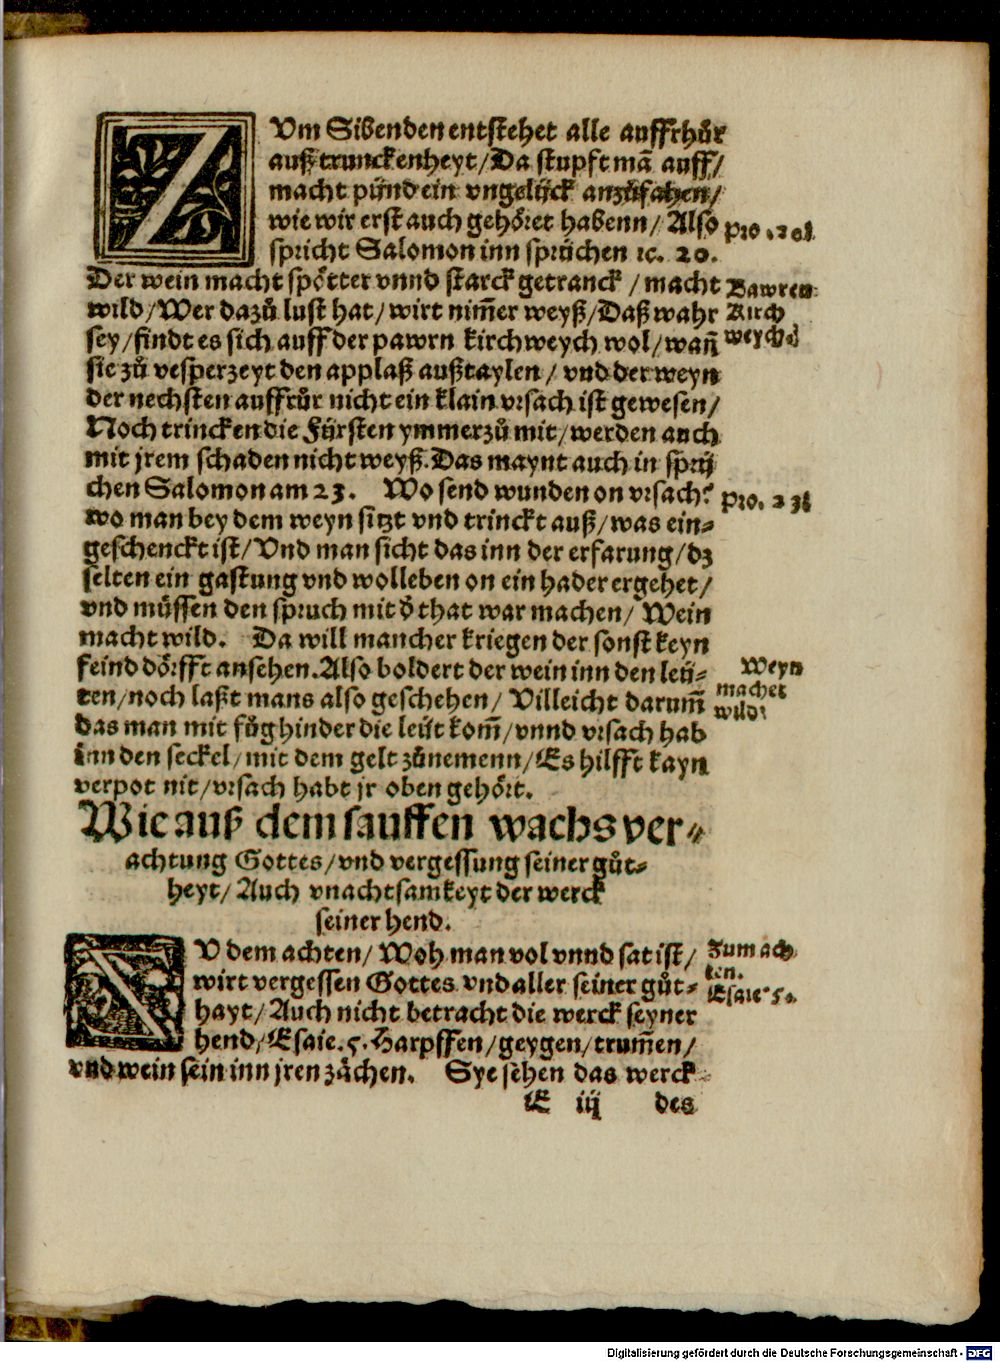 ZUm Sibenden entstehet alle auffrhůr
auß trunckenheyt/ Da stupft mā auff/
macht pünd ein vngelück anzůfahen/
wie wir erst auch gehöret habenn/ Also
spricht Salomon inn sprüchen ꝛc. 20.
pro. 20.
Der wein macht spötter vnnd starck getranck / macht
wild/ Wer dazů lust hat/ wirt nim̄er weyß/ Daß wahr
sey/ findt es sich auff der pawrn kirchweych wol/ wan̄
Bawren
Kirch
weych
sie zů vesperzeyt den applaß außtaylen / vnd der weyn
der nechsten auffrůr nicht ein klain vrsach ist gewesen/
Noch trincken die Fürsten ymmerzů mit/ werden auch
mit jrem schaden nicht weyß. Das maynt auch in sprü
chen Salomon am 23. Wo send wunden on vrsach?
pro. 23
wo man bey dem weyn sitzt vnd trinckt auß/ was ein⸗
geschenckt ist/ Vnd man sicht das inn der erfarung/ dz
selten ein gastung vnd wolleben on ein hader ergehet/
vnd müssen den spruch mit d̓ that war machen/ Wein
macht wild. Da will mancher kriegen der sonst keyn
feind dörfft ansehen. Also boldert der wein inn den leü⸗
ten/ noch laßt mans also geschehen/ Villeicht darum̄
Weyn
machet
wild
das man mit fůg hinder die leüt kom̄/ vnnd vrsach hab
inn den seckel/ mit dem gelt zůnemenn/ Es hilfft kayn
verpot nit/ vrsach habt jr oben gehört.
Wie auß dem sauffen wachs ver⸗
achtung Gottes/ vnd vergessung seiner gůt⸗
heyt/ Auch vnachtsamkeyt der werck
seiner hend.
ZU dem achten/ Woh man vol vnnd sat ist/
wirt vergessen Gottes vnd aller seiner gůt⸗
hayt/ Auch nicht betracht die werck seyner
Zum ach
ten.
Esaie 5.
hend/ Esaie. 5. Harpffen/ geygen/ trum̄en/
vnd wein sein inn jren zächen. Sye sehen das werck
E iij des
Digitalisierung gefördert durch die Deutsche Forschungsgemeinschaft - DFG